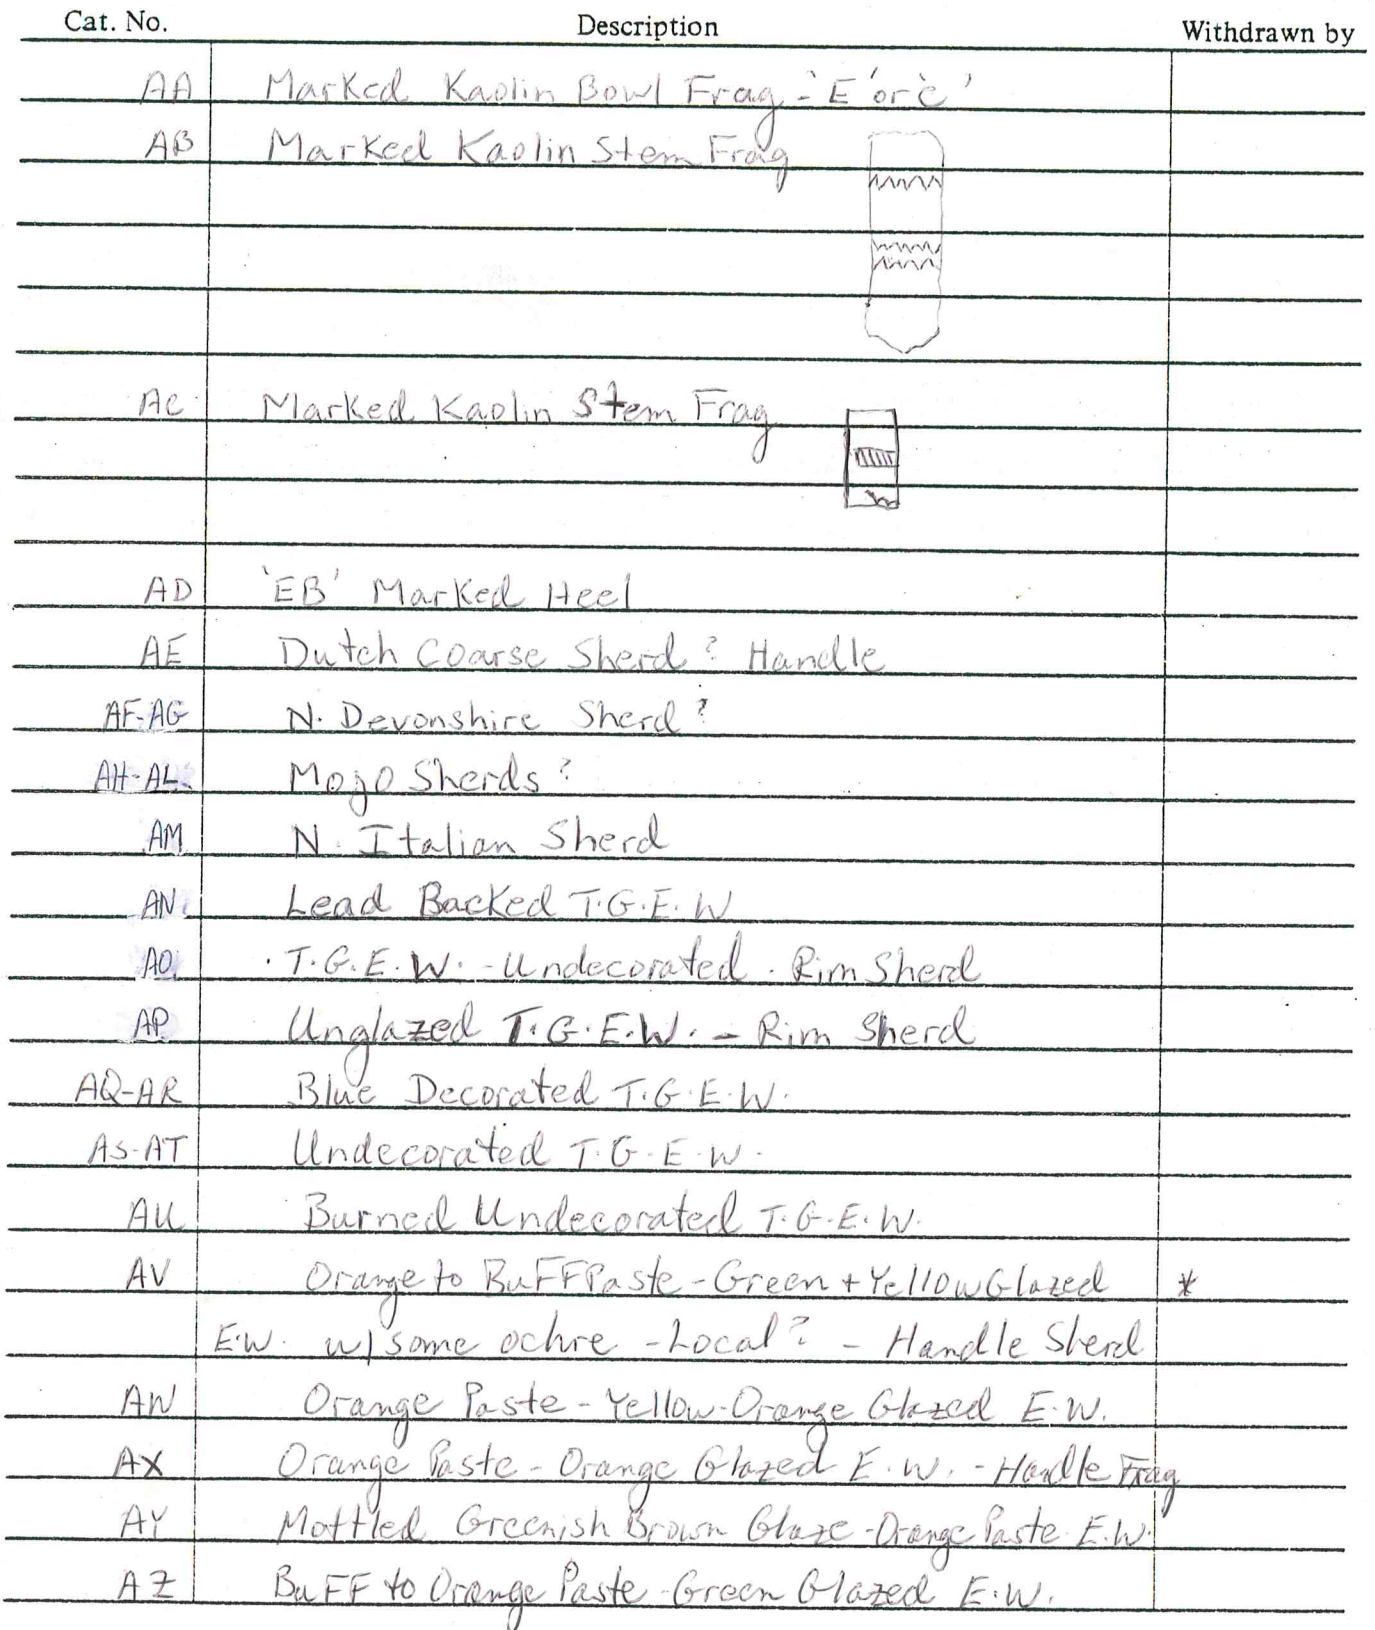 Cat. No. Description Withdrawn by
AA Marked Kaolin Bowl Frag - 'E' or è'
AB Marked Kaolin Stem Frag
AC Marked Kaolin Stem Frag
AD 'EB' Marked Heel
AE Dutch Coarse Sherd? Handle
AF-AG N. Devonshire Sherd?
AH-AL Mojo Sherds?
AM N. Italian Sherd
AN Lead Backed T.G.E.W
AO T.G.E.W. - Undecorated. Rim Sherd
AP Unglazed T.G.E.W. - Rim Sherd
AQ-AR Blue Decorated T.G.E.W.
AS-AT Undecorated T.G.E.W.
AU Burned Undecorated T.G.E.W.
AV Orange to Buff Paste - Green + Yellow Glazed *
E.W. w/ some ochre - Local? - Handle Sherd
AW Orange Paste - Yellow-Orange Glazed E.W.
AX Orange Paste - Orange Glazed E.W. - Handle Frag
AY Mottled Greenish Brown Glaze - Orange Paste E.W.
AZ Buff to Orange Paste - Green Glazed E.W.